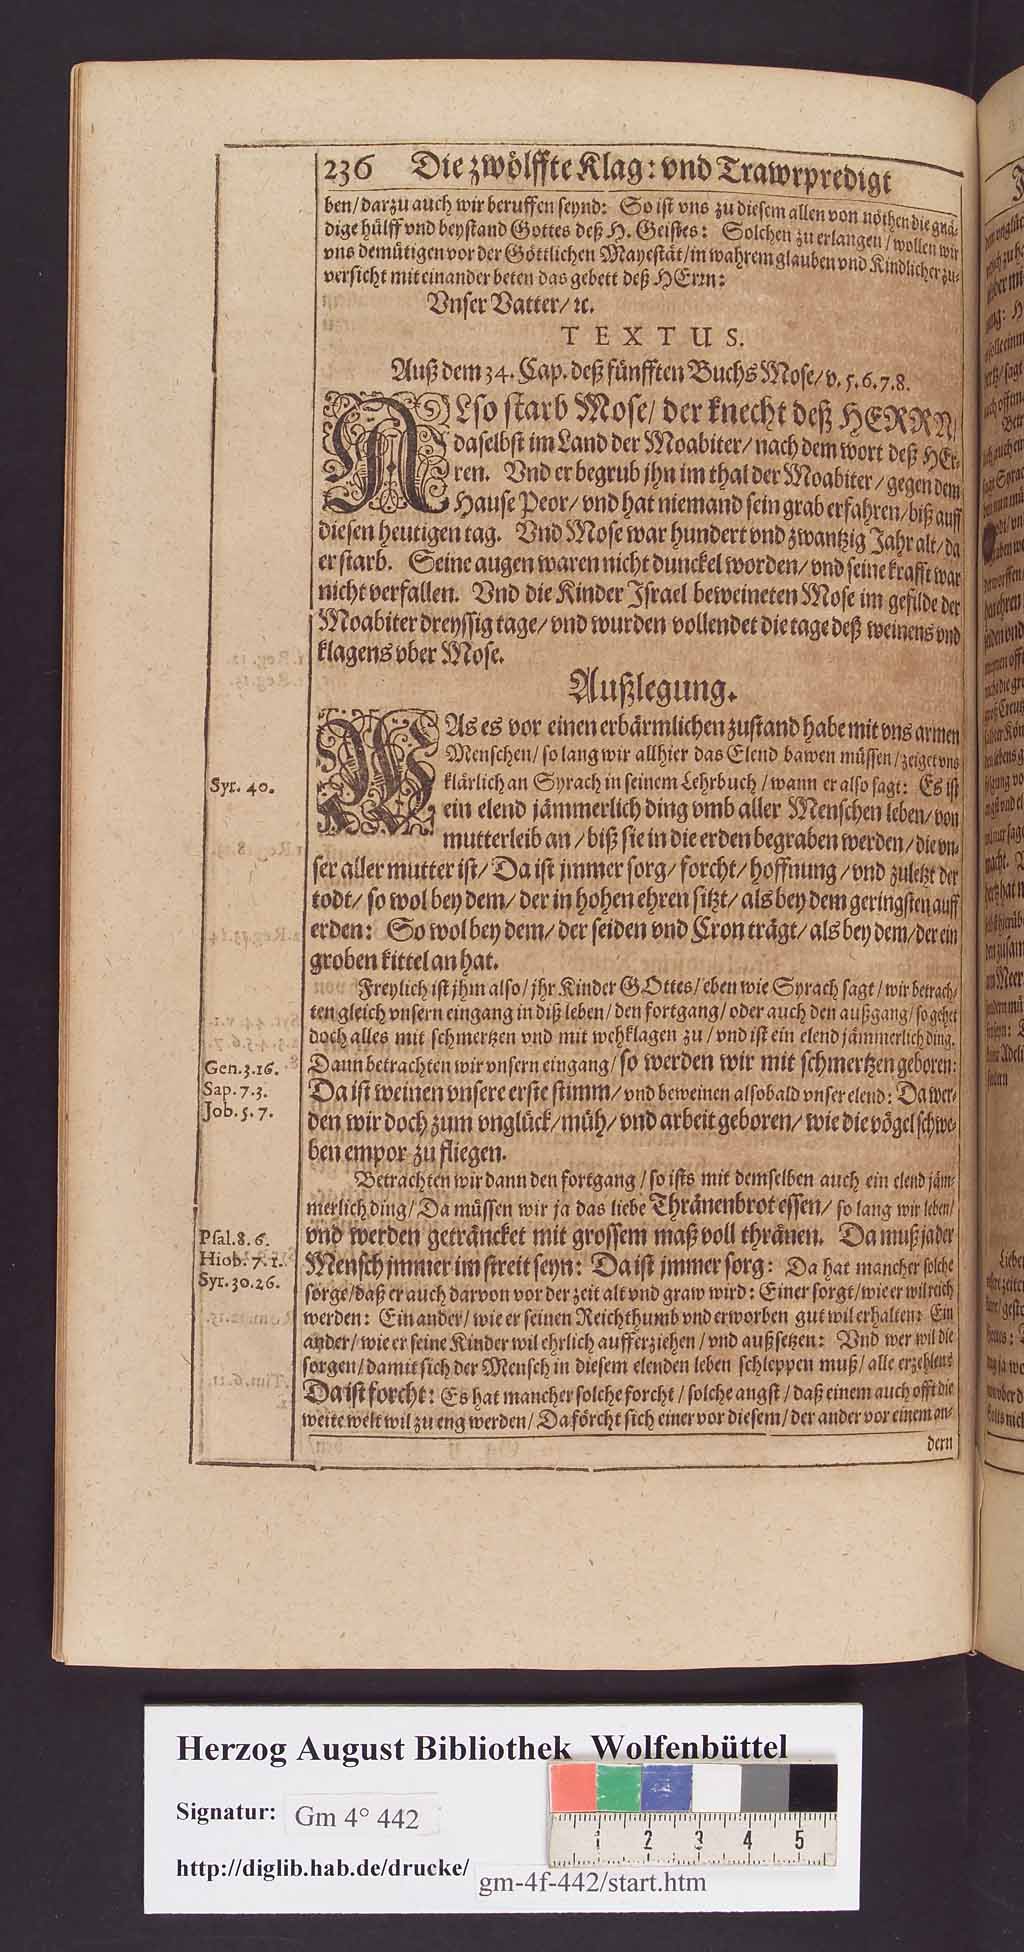 236 Die zwölffte Klag: vnd Trawrpredigt
ben/ darzu auch wir beruffen seynd: So ist vns zu diesem allen von nöthen die gnä-
dige hülff vnd beystand Gottes deß H. Geistes: Solchen zu erlangen/ wollen wir
vns demütigen vor der Göttlichen Mayestät/ in wahrem glauben vnd Kindlicher zu-
versicht mit einander beten das gebett deß HErrn:
Vnser Vatter/ ꝛc.
TEXTUS.
Auß dem 34. Cap. deß fünfften Buchs Mose/ v. 5. 6. 7. 8.
ALso starb Mose/ der knecht deß HERRN/
daselbst im Land der Moabiter/ nach dem wort deß HEr-
ren. Vnd er begrub jhn im thal der Moabiter/ gegen dem
Hause Peor/ vnd hat niemand sein grab erfahren/ biß auff
diesen heutigen tag. Vnd Mose war hundert vnd zwantzig Jahr alt/ da
er starb. Seine augen waren nicht dunckel worden/ vnd seine krafft war
nicht verfallen. Vnd die Kinder Israel beweineten Mose im gefilde der
Moabiter dreyssig tage/ vnd wurden vollendet die tage deß weinens vnd
klagens vber Mose.
Außlegung.
WAs es vor einen erbärmlichen zustand habe mit vns armen
Menschen/ so lang wir allhier das Elend bawen müssen/ zeiget vns
Syr. 40. klärlich an Syrach in seinem Lehrbuch/ wann er also sagt: Es ist
ein elend jämmerlich ding vmb aller Menschen leben/ von
mutterleib an/ biß sie in die erden begraben werden/ die vn-
ser aller mutter ist/ Da ist jmmer sorg/ forcht/ hoffnung/ vnd zuletzt der
todt/ so wol bey dem/ der in hohen ehren sitzt/ als bey dem geringsten auff
erden: So wol bey dem/ der seiden vnd Cron trägt/ als bey dem/ der ein
groben kittel an hat.
Freylich ist jhm also/ jhr Kinder GOttes/ eben wie Syrach sagt/ wir betrach-
ten gleich vnsern eingang in diß leben/ den fortgang/ oder auch den außgang/ so gehet
doch alles mit schmertzen vnd mit wehklagen zu/ vnd ist ein elend jämmerlich ding.
Gen. 3. 16. Dann betrachten wir vnsern eingang/ so werden wir mit schmertzen geboren:
Sap. 7. 3. Da ist weinen vnsere erste stimm/ vnd beweinen alsobald vnser elend: Da wer-
Job. 5. 7. den wir doch zum vnglück/ müh/ vnd arbeit geboren/ wie die vögel schwe-
ben empor zu fliegen.
Betrachten wir dann den fortgang/ so ists mit demselben auch ein elend jäm-
merlich ding/ Da müssen wir ja das liebe Thränenbrot essen/ so lang wir leben/
Psal. 8. 6. vnd werden geträncket mit grossem maß voll thränen. Da muß ja der
Hiob. 7. 1. Mensch jmmer im streit seyn: Da ist jmmer sorg: Da hat mancher solche
Syr. 30. 26. sorge/ daß er auch darvon vor der zeit alt vnd graw wird: Einer sorgt/ wie er wil reich
werden: Ein ander/ wie er seinen Reichthumb vnd erworben gut wil erhalten: Ein
ander/ wie er seine Kinder wil ehrlich aufferziehen/ vnd außsetzen: Vnd wer wil die
sorgen/ damit sich der Mensch in diesem elenden leben schleppen muß/ alle erzehlens
Da ist forcht: Es hat mancher solche forcht/ solche angst/ daß einem auch offt die
weite welt wil zu eng werden/ Da förcht sich einer vor diesem/ der ander vor einem an-
dern
Herzog August Bibliothek Wolfenbüttel
Signatur: Gm 4° 442
1 2 3 4 5
http://diglib.hab.de/drucke/ gm-4f-442/start.htm